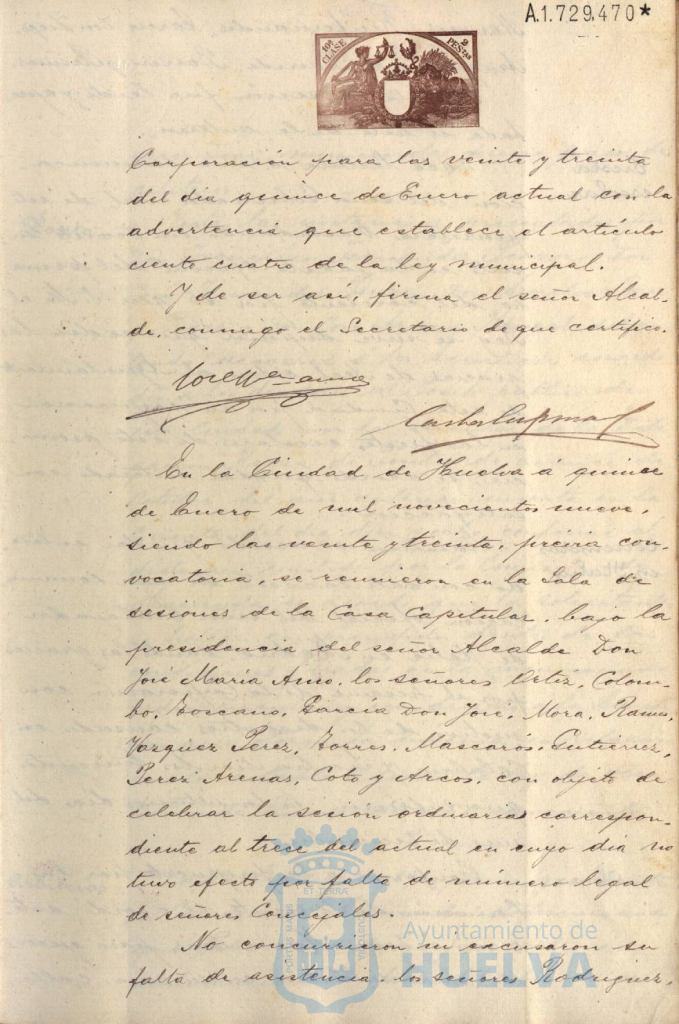 A.1.729.470*
10ª CLASE
2 PESETAS
Corporación para las veinte y treinta
del dia quince de Enero actual con la
advertencia que establece el artículo
ciento cuatro de la ley municipal.
Y de ser así, firma el señor Alcal-
de, conmigo el Secretario de que certifico.
En la Ciudad de Huelva á quince
de Enero de mil novecientos nueve,
siendo las veinte y treinta, prévia con-
vocatoria, se reunieron en la Sala de
sesiones de la Casa Capitular, bajo la
presidencia del señor Alcalde Don
José María Amo, los señores Ortiz, Colom-
bo, Toscano, García Don José, Mora, Ramos,
Vazquez Perez, Torres, Mascarós, Gutierrez,
Perez Arenas, Coto y Arcos, con objeto de
celebrar la sesión ordinaria correspon-
diente al trece del actual en cuyo dia no
tuvo efecto por falta de número legal
de señores Concejales.
No concurrieron ni excusaron su
falta de asistencia, los señores Rodriguez,
Ayuntamiento de
HUELVA